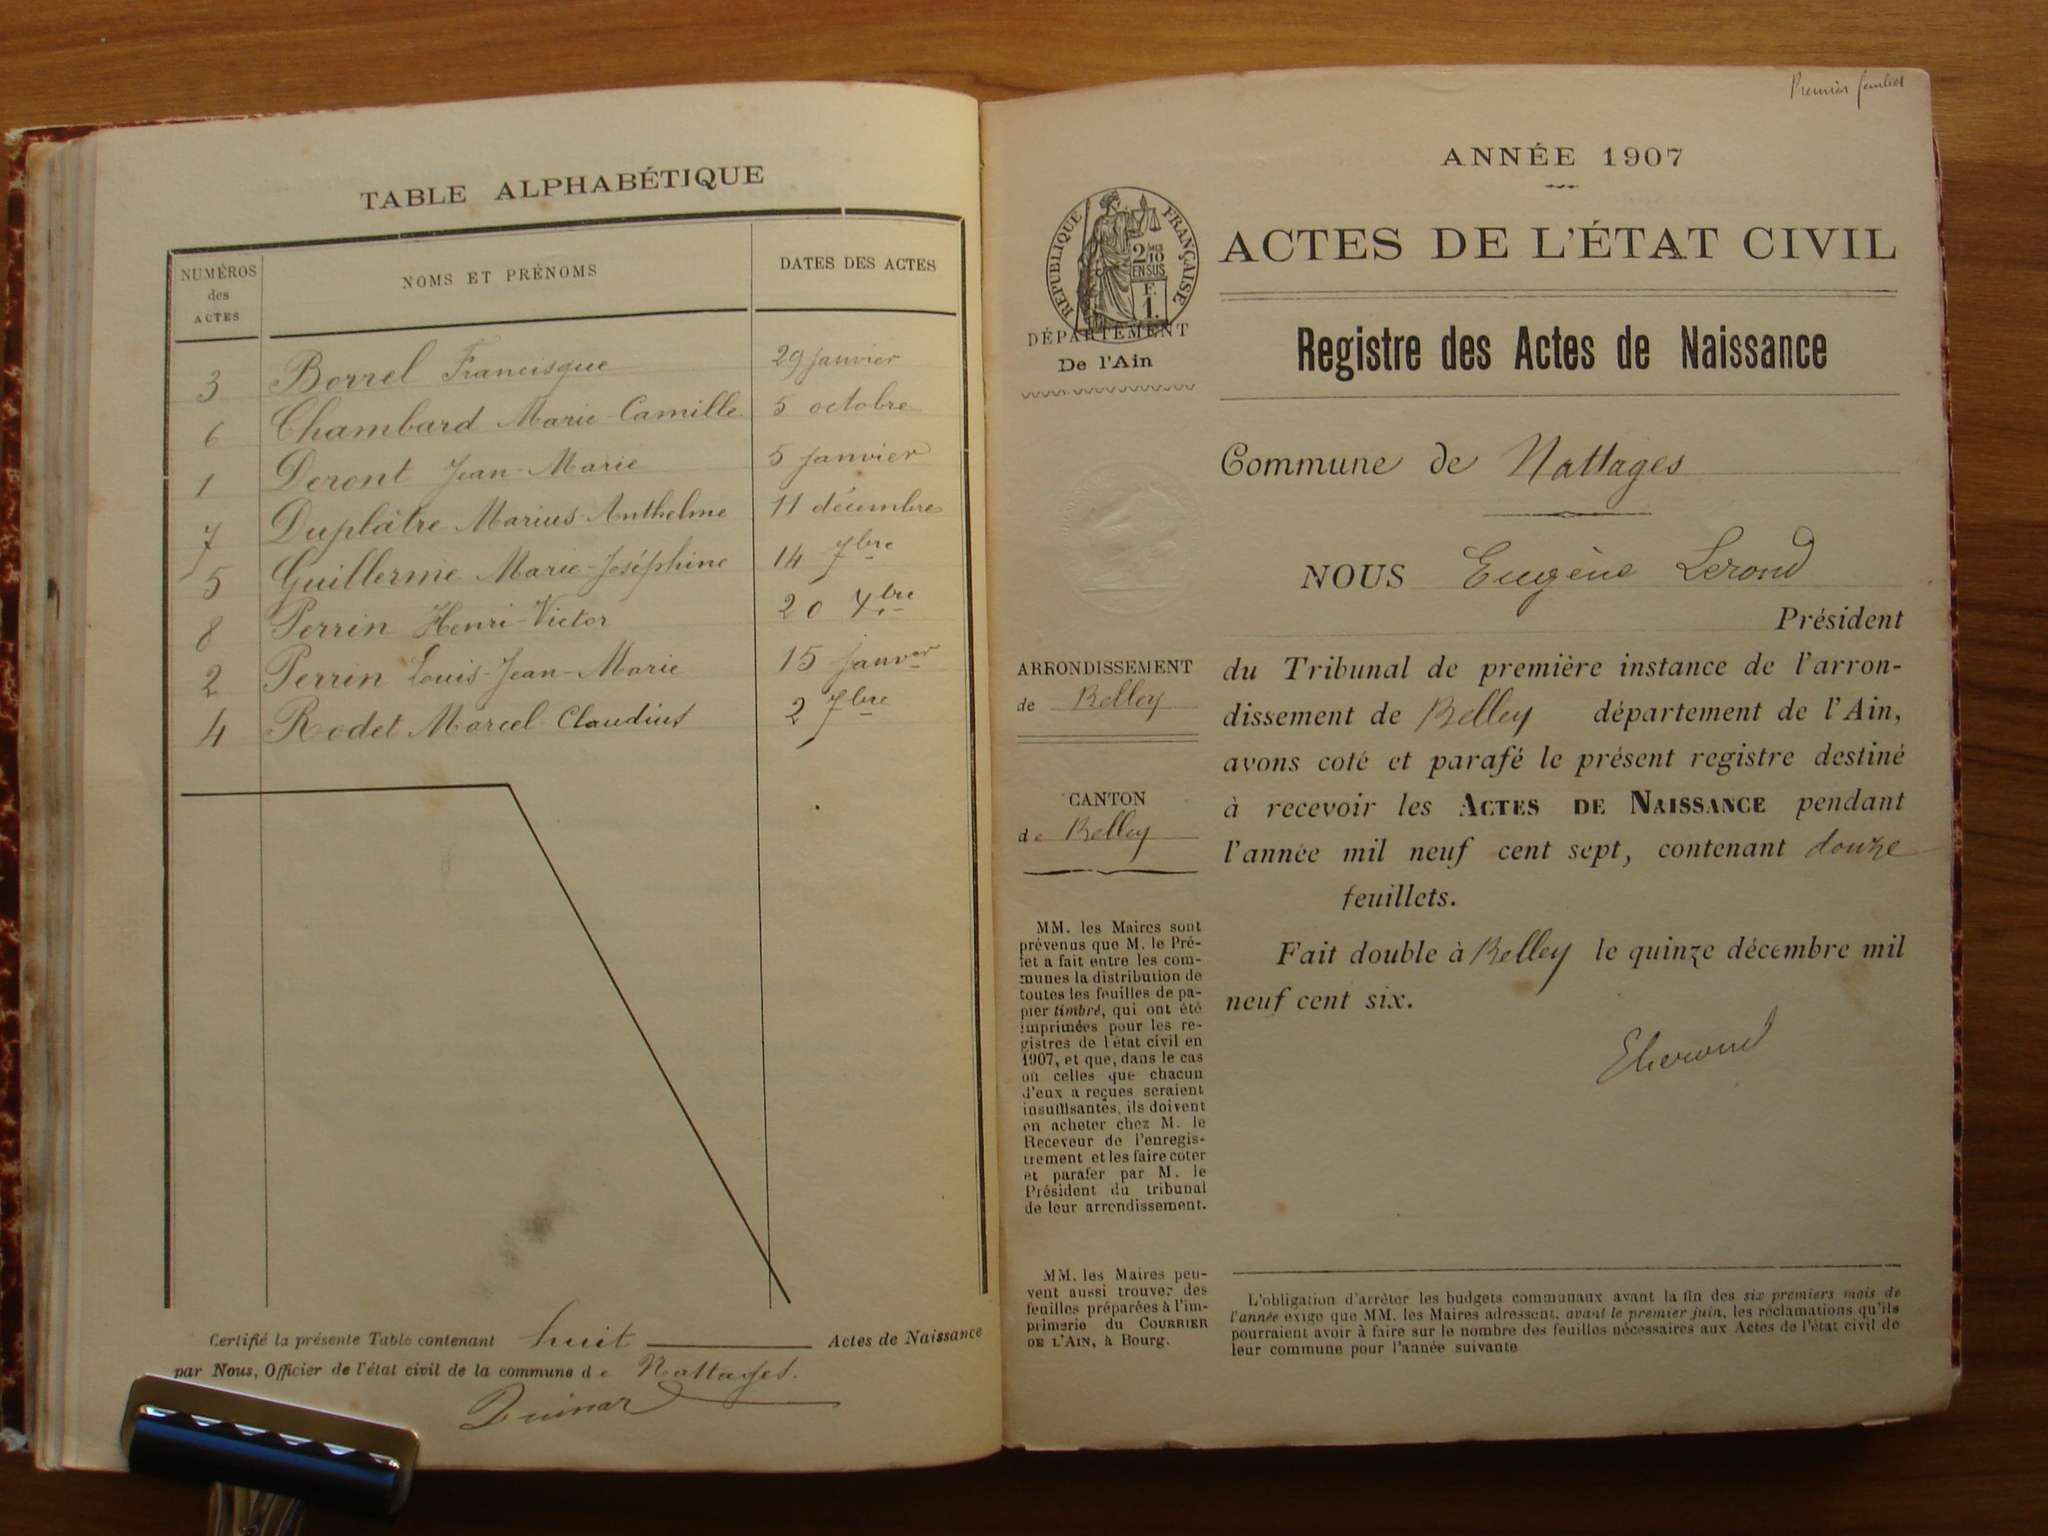 TABLE ALPHABÉTIQUE
NUMÉROS des ACTES
NOMS ET PRÉNOMS
DATES DES ACTES
3 Borrel Francisque 29 janvier
6 Chambard Marie-Camille 5 octobre
1 Deront Jean-Marie 5 janvier
7 Duplâtre Marius-Anthelme 11 décembre
5 Guillerme Marie-Joséphine 14 7bre
8 Perrin Henri-Victor 20
2 Perrin Louis-Jean-Marie 15 janver
4 Rodet Marcel Claudius 2 7bre
Certifié la présente Table contenant huit Actes de Naissance
par Nous, Officier de l'état civil de la commune de Nattages.
Premier feuillet
ANNÉE 1907
RÉPUBLIQUE FRANÇAISE
2/10
EN SUS
F.
1.
ACTES DE L'ÉTAT CIVIL
DÉPARTEMENT
De l'Ain
Registre des Actes de Naissance
Commune de Nattages
NOUS Eugène Lerond
Président
ARRONDISSEMENT
de Belley
CANTON
de Belley
du Tribunal de première instance de l'arron-
dissement de Belley département de l'Ain,
avons coté et parafé le présent registre destiné
à recevoir les ACTES DE NAISSANCE pendant
l'année mil neuf cent sept, contenant douze
feuillets.
Fait double à Belley le quinze décembre mil
neuf cent six.
MM. les Maires sont
prévenus que M. le Pré-
fet a fait entre les com-
munes la distribution de
toutes les feuilles de pa-
pier timbré, qui ont été
imprimées pour les re-
gistres de l'état civil en
1907, et que, dans le cas
où celles que chacun
d'eux a reçues seraient
insuffisantes, ils doivent
en acheter chez M. le
Receveur de l'enregis-
trement et les faire coter
et parafer par M. le
Président du tribunal
de leur arrondissement.
MM. les Maires peu-
vent aussi trouver des
feuilles préparées à l'im-
primerie du COURRIER
DE L'AIN, à Bourg.
L'obligation d'arrêter les budgets communaux avant la fin des six premiers mois de
l'année exige que MM. les Maires adressent, avant le premier juin, les réclamations qu'ils
pourraient avoir à faire sur le nombre des feuilles nécessaires aux Actes de l'état civil de
leur commune pour l'année suivante